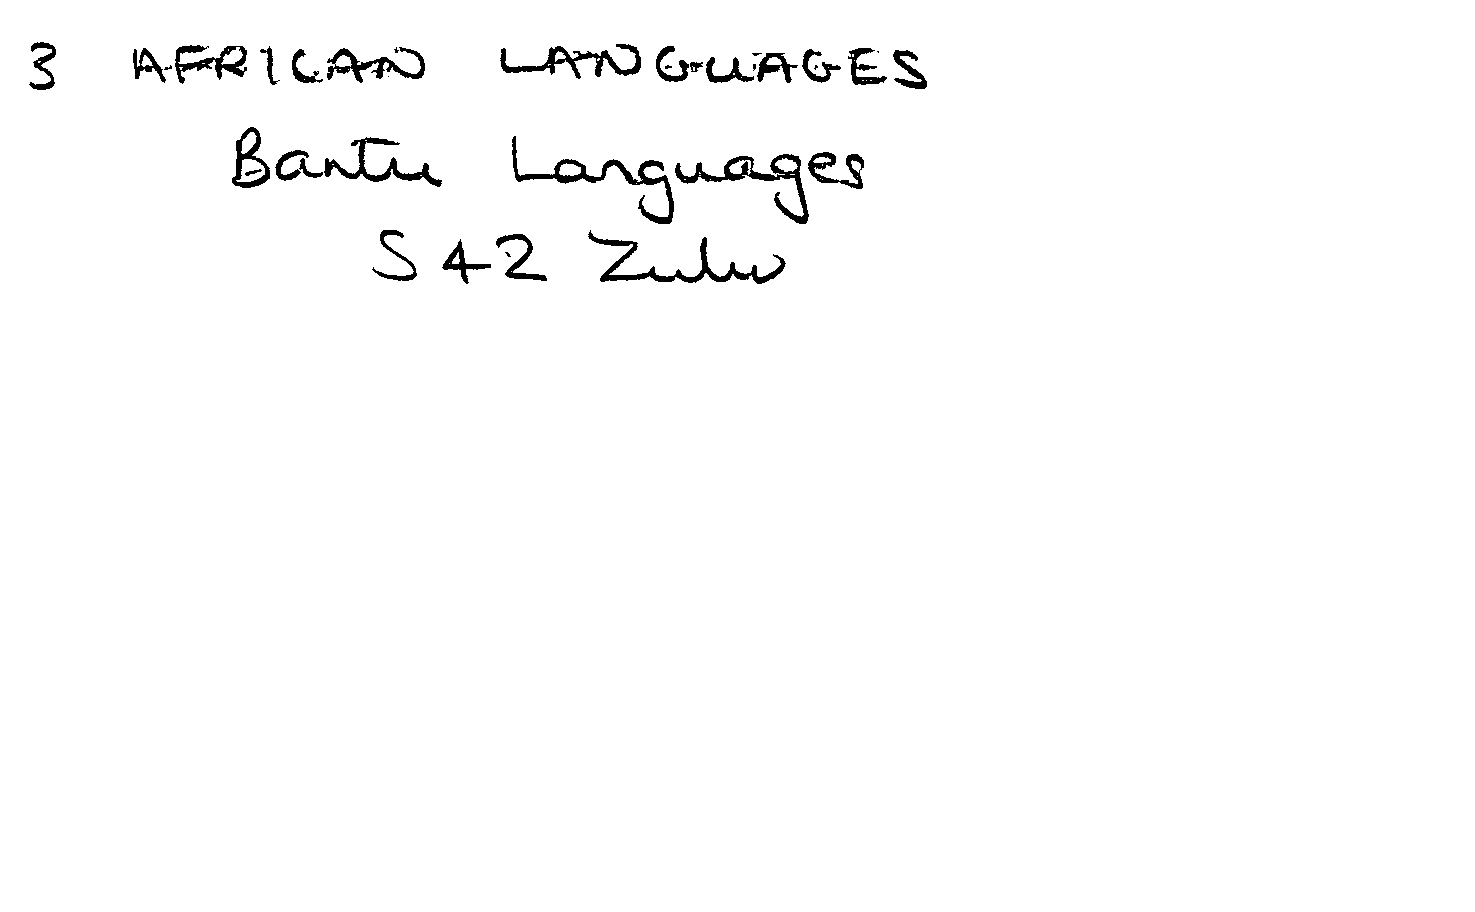 3 AFRICAN LANGUAGES
Bantu Languages
S 42 Zulu